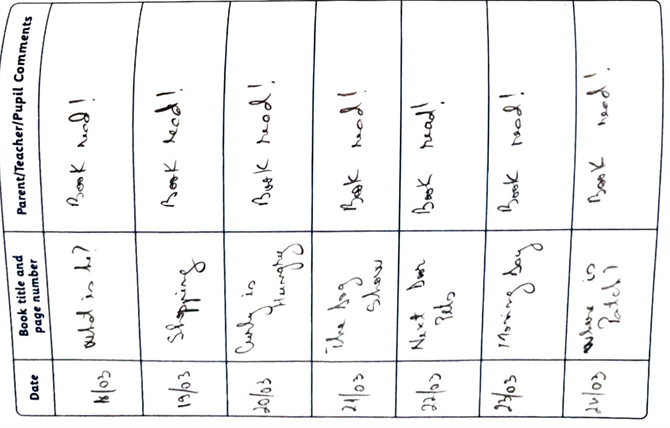 Date
Book title and
page number
Parent/Teacher/Pupil Comments
18/03
What is he?
Book read!
19/03
Shopping
Book read!
20/03
Curly is
Hungry
Book read!
21/03
The Dog
Show
Book read!
22/03
Next Door
Pets
Book read!
23/03
Moving Day
Book read!
24/03
Where is
Patch?
Book read!